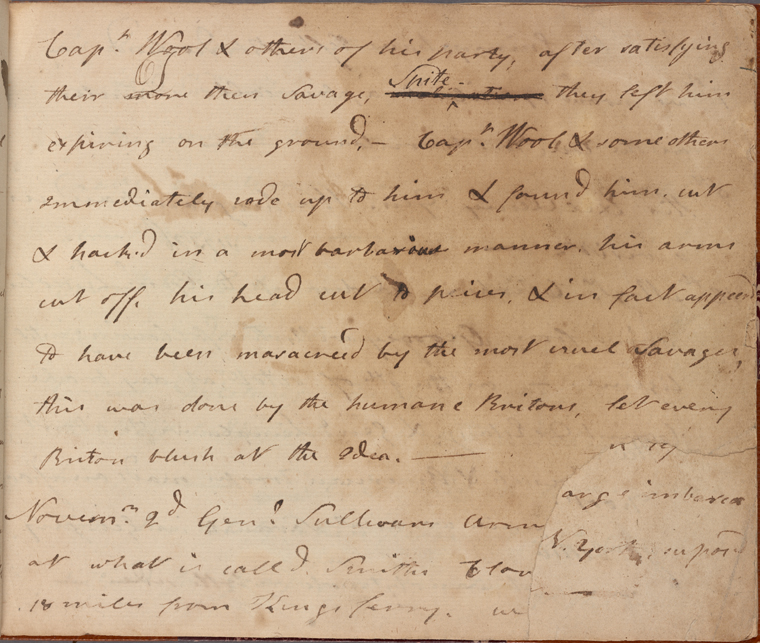 Capn. Wool & others of his party, after satisfying
their more then Savage, Spite - they left him
expiring on the ground, - Capn. Wool & some others
immediately rode up to him & found him. cut
& hack'd in a most barbarious manner. his arms
cut off. his head cut to peices, & in fact appeard
to have been masacreed by the most cruel Savages,
this was done by the humane Britons, let every
Briton blush at the Idea. —
Novemr. 2d Genl. Sullivans
arge imbarca
at what is call'd. Smiths Clov
N. York, supos
18 miles from Kings ferry.